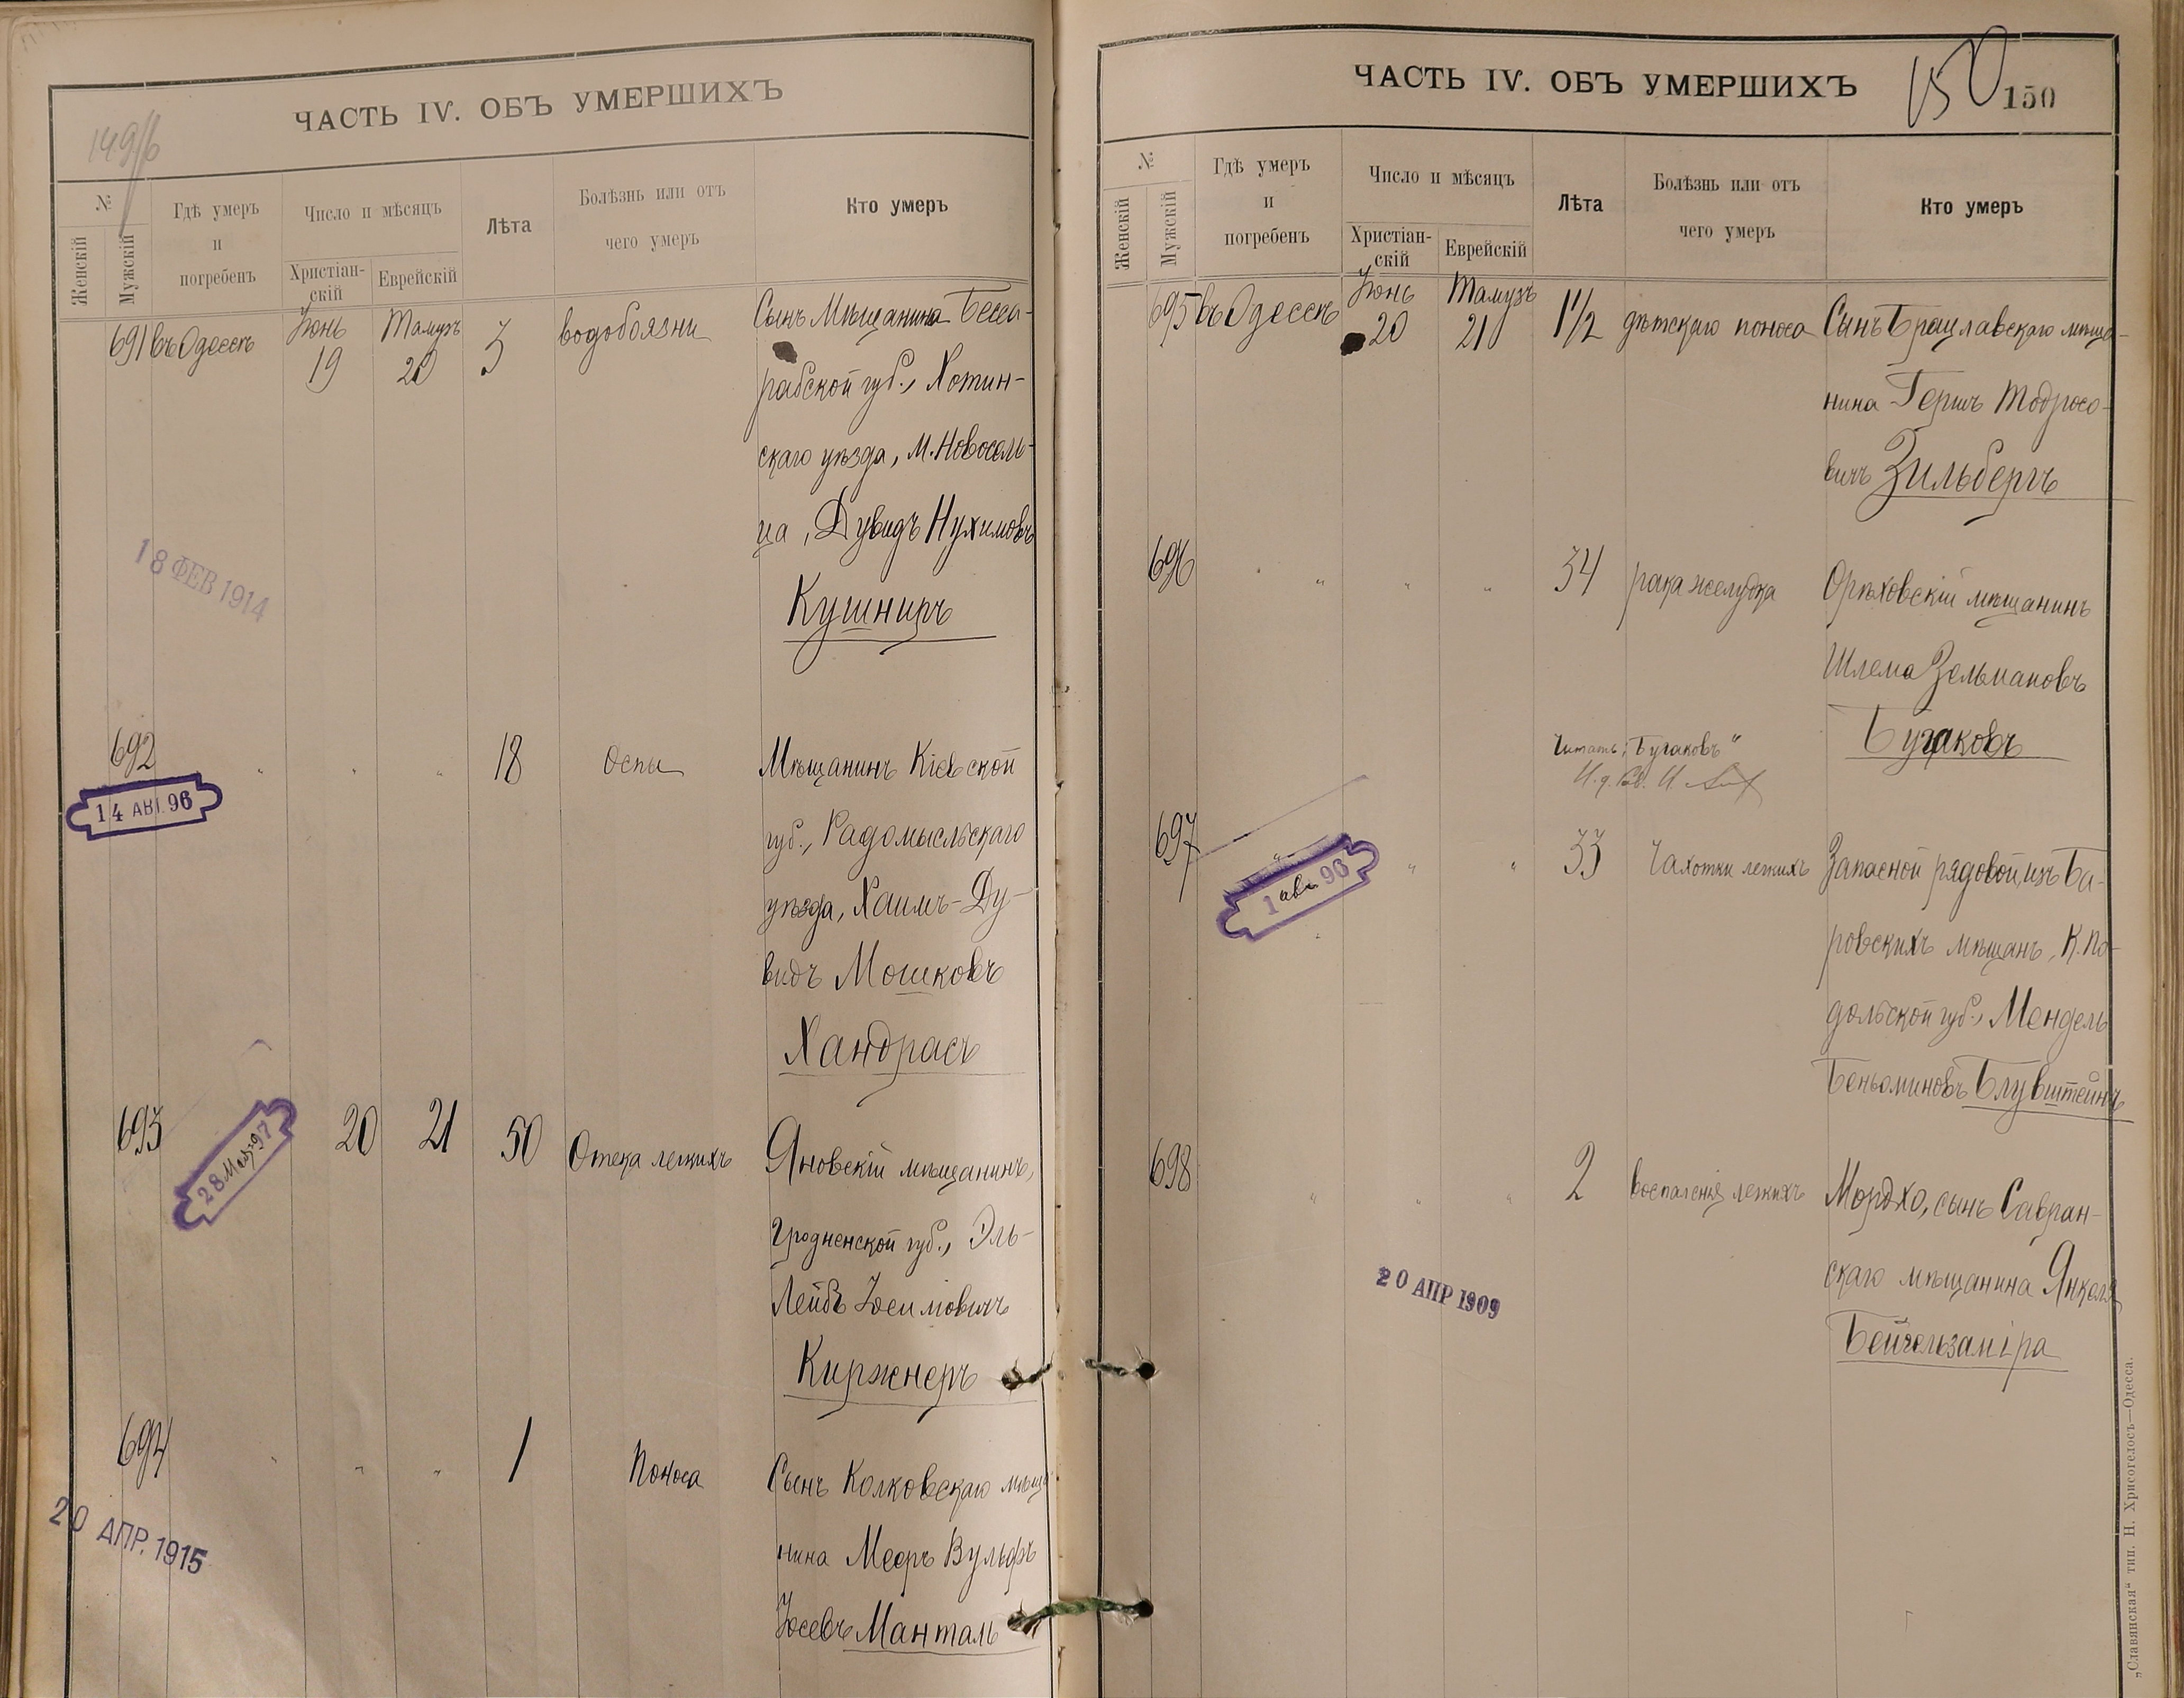 ЧАСТЬ IV. ОБЪ УМЕРШИХЪ
149/б
№
Женскій
Мужскій
Гдѣ умеръ
и
погребенъ
Число и мѣсяцъ
Христіан-
скій
Еврейскій
Лѣта
Болѣзнь или отъ
чего умеръ
Кто умеръ
691 въ Одессѣ Іюнь 19 Тамузъ 20 3 водобоязни Сынъ Мѣщанина Бесса-
рабской губ., Хотин-
скаго уѣзда, м. Новосель-
ца, Дувидъ Нухимовъ
Кушниръ
18 ФЕВ 1914
692 " " " 18 Оспы Мѣщанинъ Кіевской
14 АВГ. 96
губ., Радомысльскаго
уѣзда, Хаимъ-Ду-
видъ Мошковъ
Хандрасъ
693 20 21 50 Отека легкихъ Яновскій мѣщанинъ,
28 97
Гродненской губ., Эль-
Лейбъ Іосимовичъ
Киржнеръ
694 " " " 1 Поноса Сынъ Колковскаго мѣща
нина Мееръ Вульфъ
Іосевъ Манталь
20 АПР. 1915
ЧАСТЬ IV. ОБЪ УМЕРШИХЪ
150
150
№
Женскій
Мужскій
Гдѣ умеръ
и
погребенъ
Число и мѣсяцъ
Христіан-
скій
Еврейскій
Лѣта
Болѣзнь или отъ
чего умеръ
Кто умеръ
695 въ Одессѣ Іюнь 20 Тамузъ 21 1 1/2 дѣтскаго поноса Сынъ Брацлавскаго мѣща-
нина Гершъ Тодросо-
вичъ Зильбергъ
696 " " " " 34 рака желудка Орѣховскій мѣщанинъ
Шлема Зельмановъ
Бугаковъ
Читать: „Бугаковъ"
697 " " " 33 Чахотки легкихъ Запасной рядовой, изъ Ба-
1 авг. 96
ровскихъ мѣщанъ, К. По-
дольской губ., Мендель
Беньоминовъ Блувштейнъ
698 " " " 2 воспаленія легкихъ Мордхо, сынъ Савран-
скаго мѣщанина Янкеля
Бейчельзаміра
20 АПР 1909
„Славянская" тип. Н. Хрисогелосъ—Одесса.